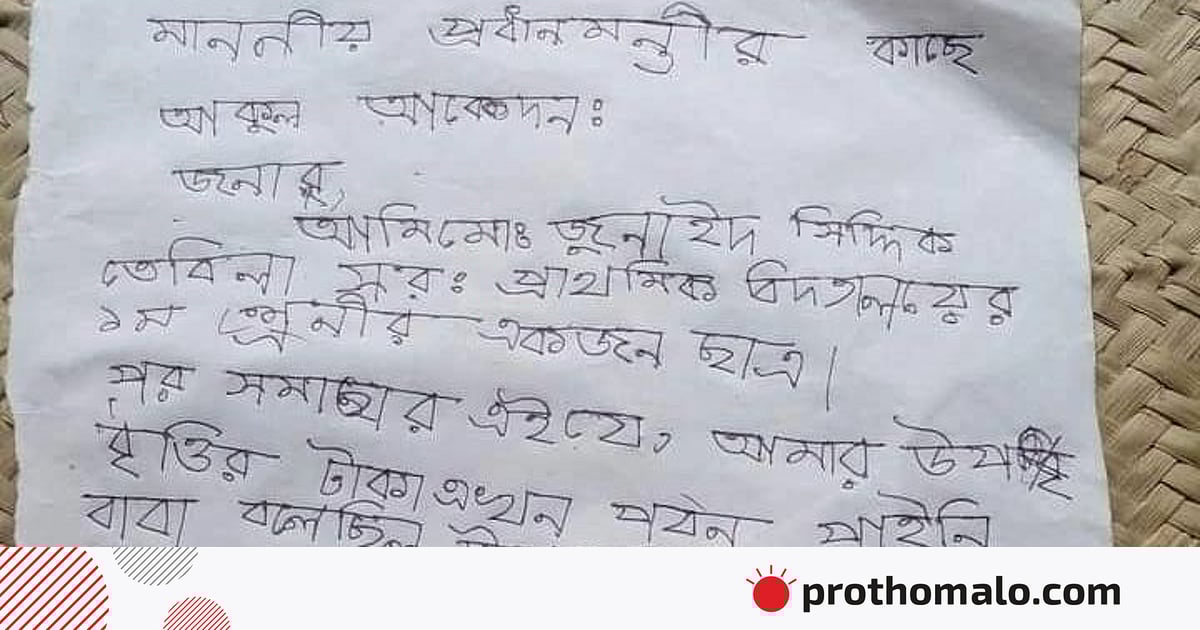 মাননীয় প্রধানমন্ত্রীর কাছে
আকুল আবেদন:
জনাব,
আমি মোঃ জুনাইদ সিদ্দিক
তেবিলা সর: প্রাথমিক বিদ্যালয়ের
১ম শ্রেনীর একজন ছাত্র।
পর সমাছার এইযে, আমার উপ
বৃত্তির টাকা এখন পর্যন পাইনি
বাবা বলেছিল
prothomalo.com